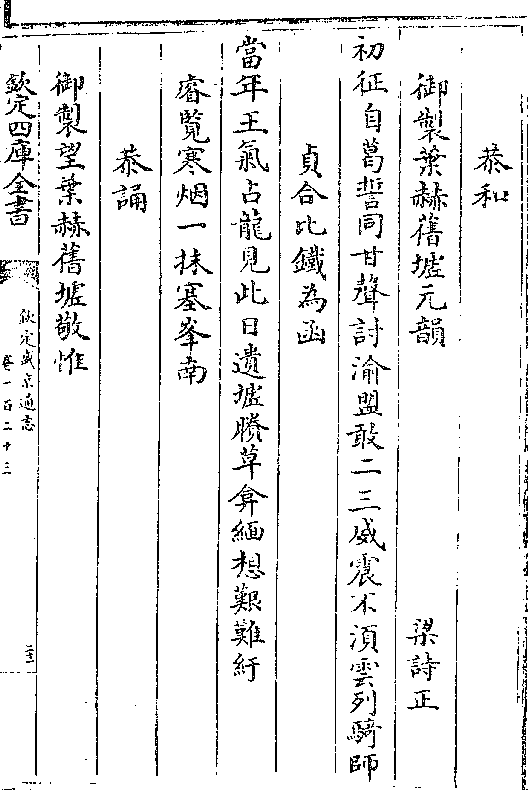 恭和
御製葉赫舊墟元韻　梁詩正
初征自葛誓同甘聲討渝盟敢二三威震不須雲列騎師
貞合比鐵為函
當年王氣占龍見此日遺墟賸草弇緬想艱難紆
睿覽寒烟一抹塞峯南
恭誦
御製望葉赫舊墟敬惟
欽定四庫全書
欽定盛京通志
卷一百二十三